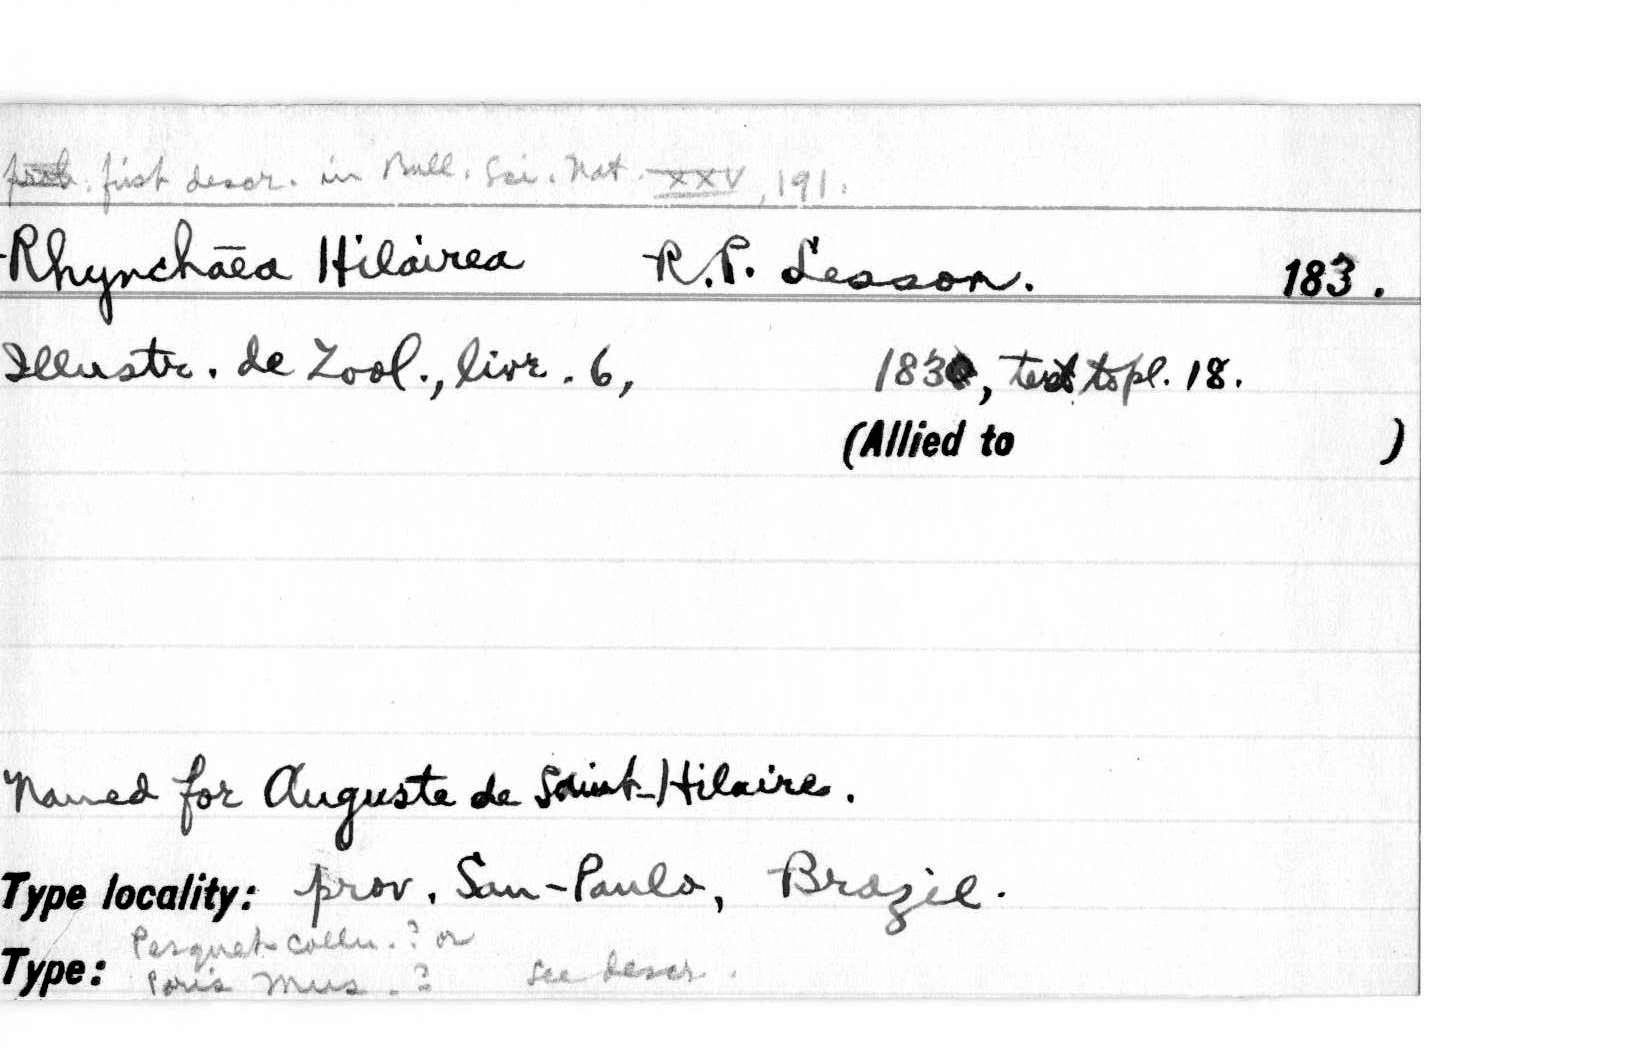 first descr. in Bull. Sci. Nat. XXV, 191.
Rhynchāea Hilairea R.P. Lesson. 183.
Illustr. de Zool., livr. 6, 183 , text to pl. 18.
(Allied to )
Named for Auguste de Saint-Hilaire.
Type locality: prov. San-Paulo, Brazil.
Pasquet colln. ? or
Type: Paris Mus. ? see descr.